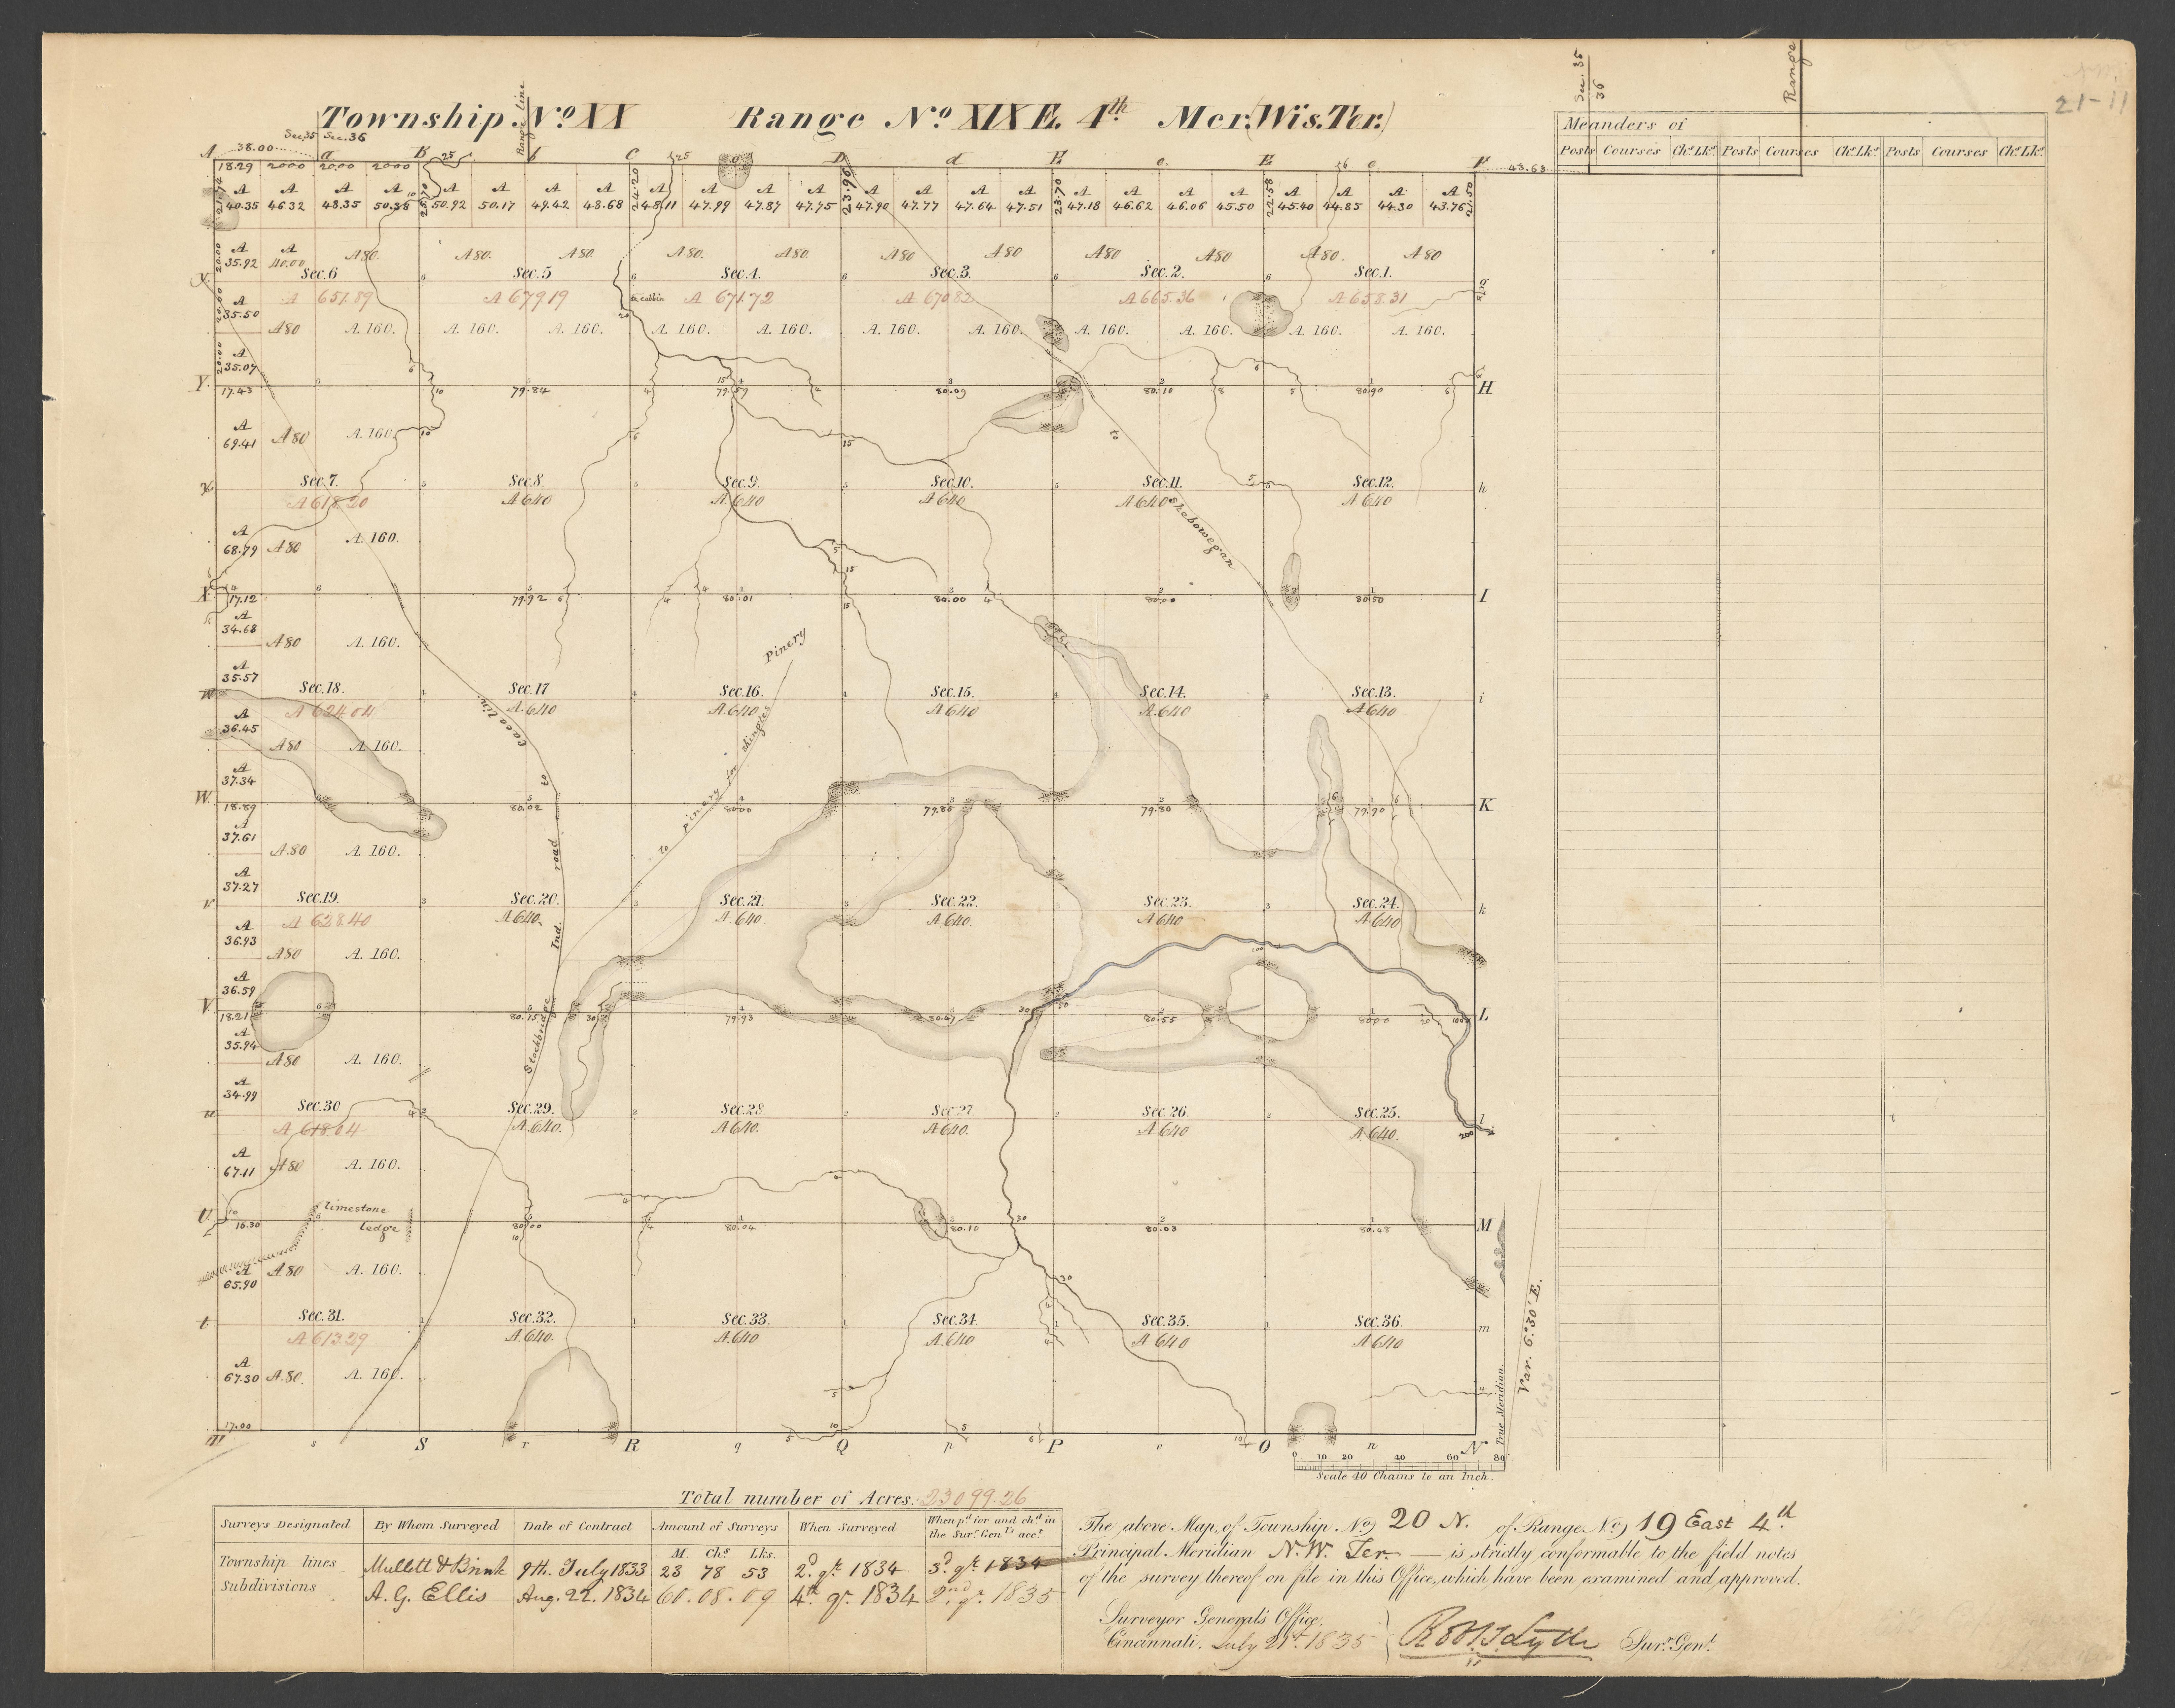 Sec. 35
36
Range
21-11
Township. No XX Range No XIX E. 4th Mer. (Wis. Ter.)
Range line
Sec 35 Sec. 36
Meanders of
Posts Courses Chs. Lks. Posts Courses Chs. Lks. Posts Courses Chs. Lks.
A 38.00 a B 25 b C 25 D d E e E e F 43.63
18.29 2000 20.00 2000
A A A A A A A A A A A A A A A A A A A A A A A A
40.35 46.32 48.35 50.35 50.92 50.17 49.42 48.68 48.11 47.99 47.87 47.75 47.90 47.77 47.64 47.51 47.18 46.62 46.06 45.50 45.40 44.85 44.30 43.76
24.20 23.96 23.70 22.58 21.50
A 35.92 A 40.00 A 80. A 80. A 80. A 80. A 80. A 80 A 80 A 80 A 80 A 80. A 80
Sec. 6 Sec. 5 Sec. 4. Sec. 3. Sec. 2. Sec. 1.
A 651.89 A 679.19 A 671.72 A 670.82 A 665.36 A 658.31
cabbin
A 35.50
A 80 A. 160. A. 160. A. 160. A. 160. A. 160. A. 160. A. 160. A. 160. A. 160. A. 160. A. 160.
A 35.07
Y. 17.43 79.84 79.59 80.09 80.10 80.90 H
A 69.41 A 80 A. 160.
to
Sec. 7. Sec. 8. Sec. 9. Sec. 10. Sec. 11. Sec. 12.
A 618.20 A 640 A 640 A 640 A 640 A 640
h
Shebowegan
A 68.79 A 80 A. 160.
X 17.12 79.92 80.01 80.00 80.00 80.50 I
A 34.68 A 80 A. 160.
Pinery
A 35.57
Sec. 18. Sec. 17 Sec. 16. Sec. 15. Sec. 14. Sec. 13.
A 624.04 A. 640 A. 640 A 640 A 640 A 640
i
A 36.45 A 80 A. 160.
A 37.34
to pinery for shingles
W. 18.89 80.02 80.00 79.85 79.80 79.90 K
A 37.61 A. 80 A. 160.
A 37.27
Sec. 19. Sec. 20. Sec. 21. Sec. 22. Sec. 23. Sec. 24.
A 628.40 A 640. A. 640 A 640. A 640 A 640
k
A 36.93 A 80 A. 160.
Stockbridge Ind. road to Cacalin
A 36.59
V. 18.21 80.15 79.93 80.67 80.55 80.00 L
A 35.94 A 80 A. 160.
A 34.99
Sec. 30 Sec. 29. Sec. 28 Sec. 27 Sec. 26. Sec. 25.
A 618.04 A. 640. A 640. A 640. A 640 A 640.
l
200
A 67.11 A 80 A. 160.
limestone
ledge
U. 16.30 80.00 80.04 80.10 80.03 80.48 M
A 65.90 A. 80 A. 160.
Sec. 31. Sec. 32. Sec. 33. Sec. 34. Sec. 35. Sec. 36.
A 613.29 A. 640. A. 640 A 640 A 640 A 640
t m
A 67.30 A. 80. A. 160.
17.00
T s S r R q Q p P o O n N
True Meridian.
Var. 6° 30' E.
0 10 20 40 60 80
Scale 40 Chains to an Inch.
Total number of Acres. 23099.26
Surveys Designated By Whom Surveyed Date of Contract Amount of Surveys When Surveyed When pd for and chd in the Surr Genls acct
M. Chs Lks.
Township lines Mullett & Brink 9th. July 1833 23 78 53 2d. qr. 1834 3d. qr. 1834
Subdivisions A. G. Ellis Aug. 22. 1834 60.08.09 4th qr. 1834 2nd q. 1835
The above Map, of Township No) 20 N. of Range No) 19 East 4th
Principal Meridian N. W. Ter. — is strictly conformable to the field notes
of the survey thereof on file in this Office, which have been examined and approved.
Surveyor General's Office.
Cincinnati. July 21st. 1835 Robt. T. Lytle Surr. Genl.